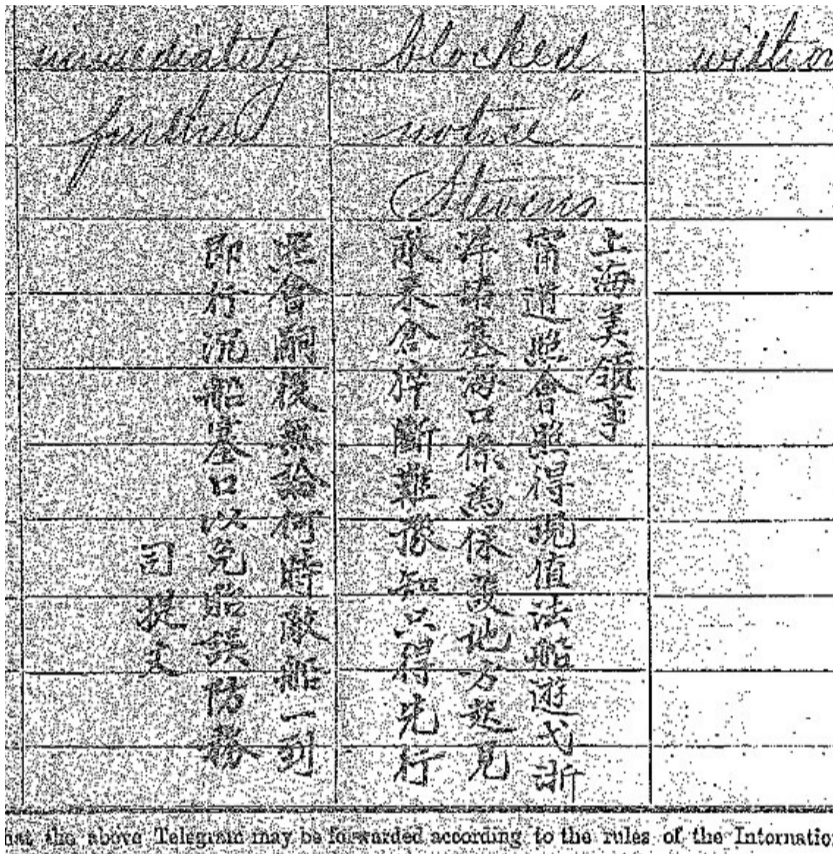 immediately blocked witho
further notice"
Stevens
上海美領事
甯道照會照得現值法船遊弋浙
洋堵塞海口係為保護地方起見
敵來倉猝斷難豫知只得先行
照會嗣後無論何時敵船一到
即行沉船塞口以免貽誤防務
司提文
the above Telegram may be forwarded according to the rules of the Internatio